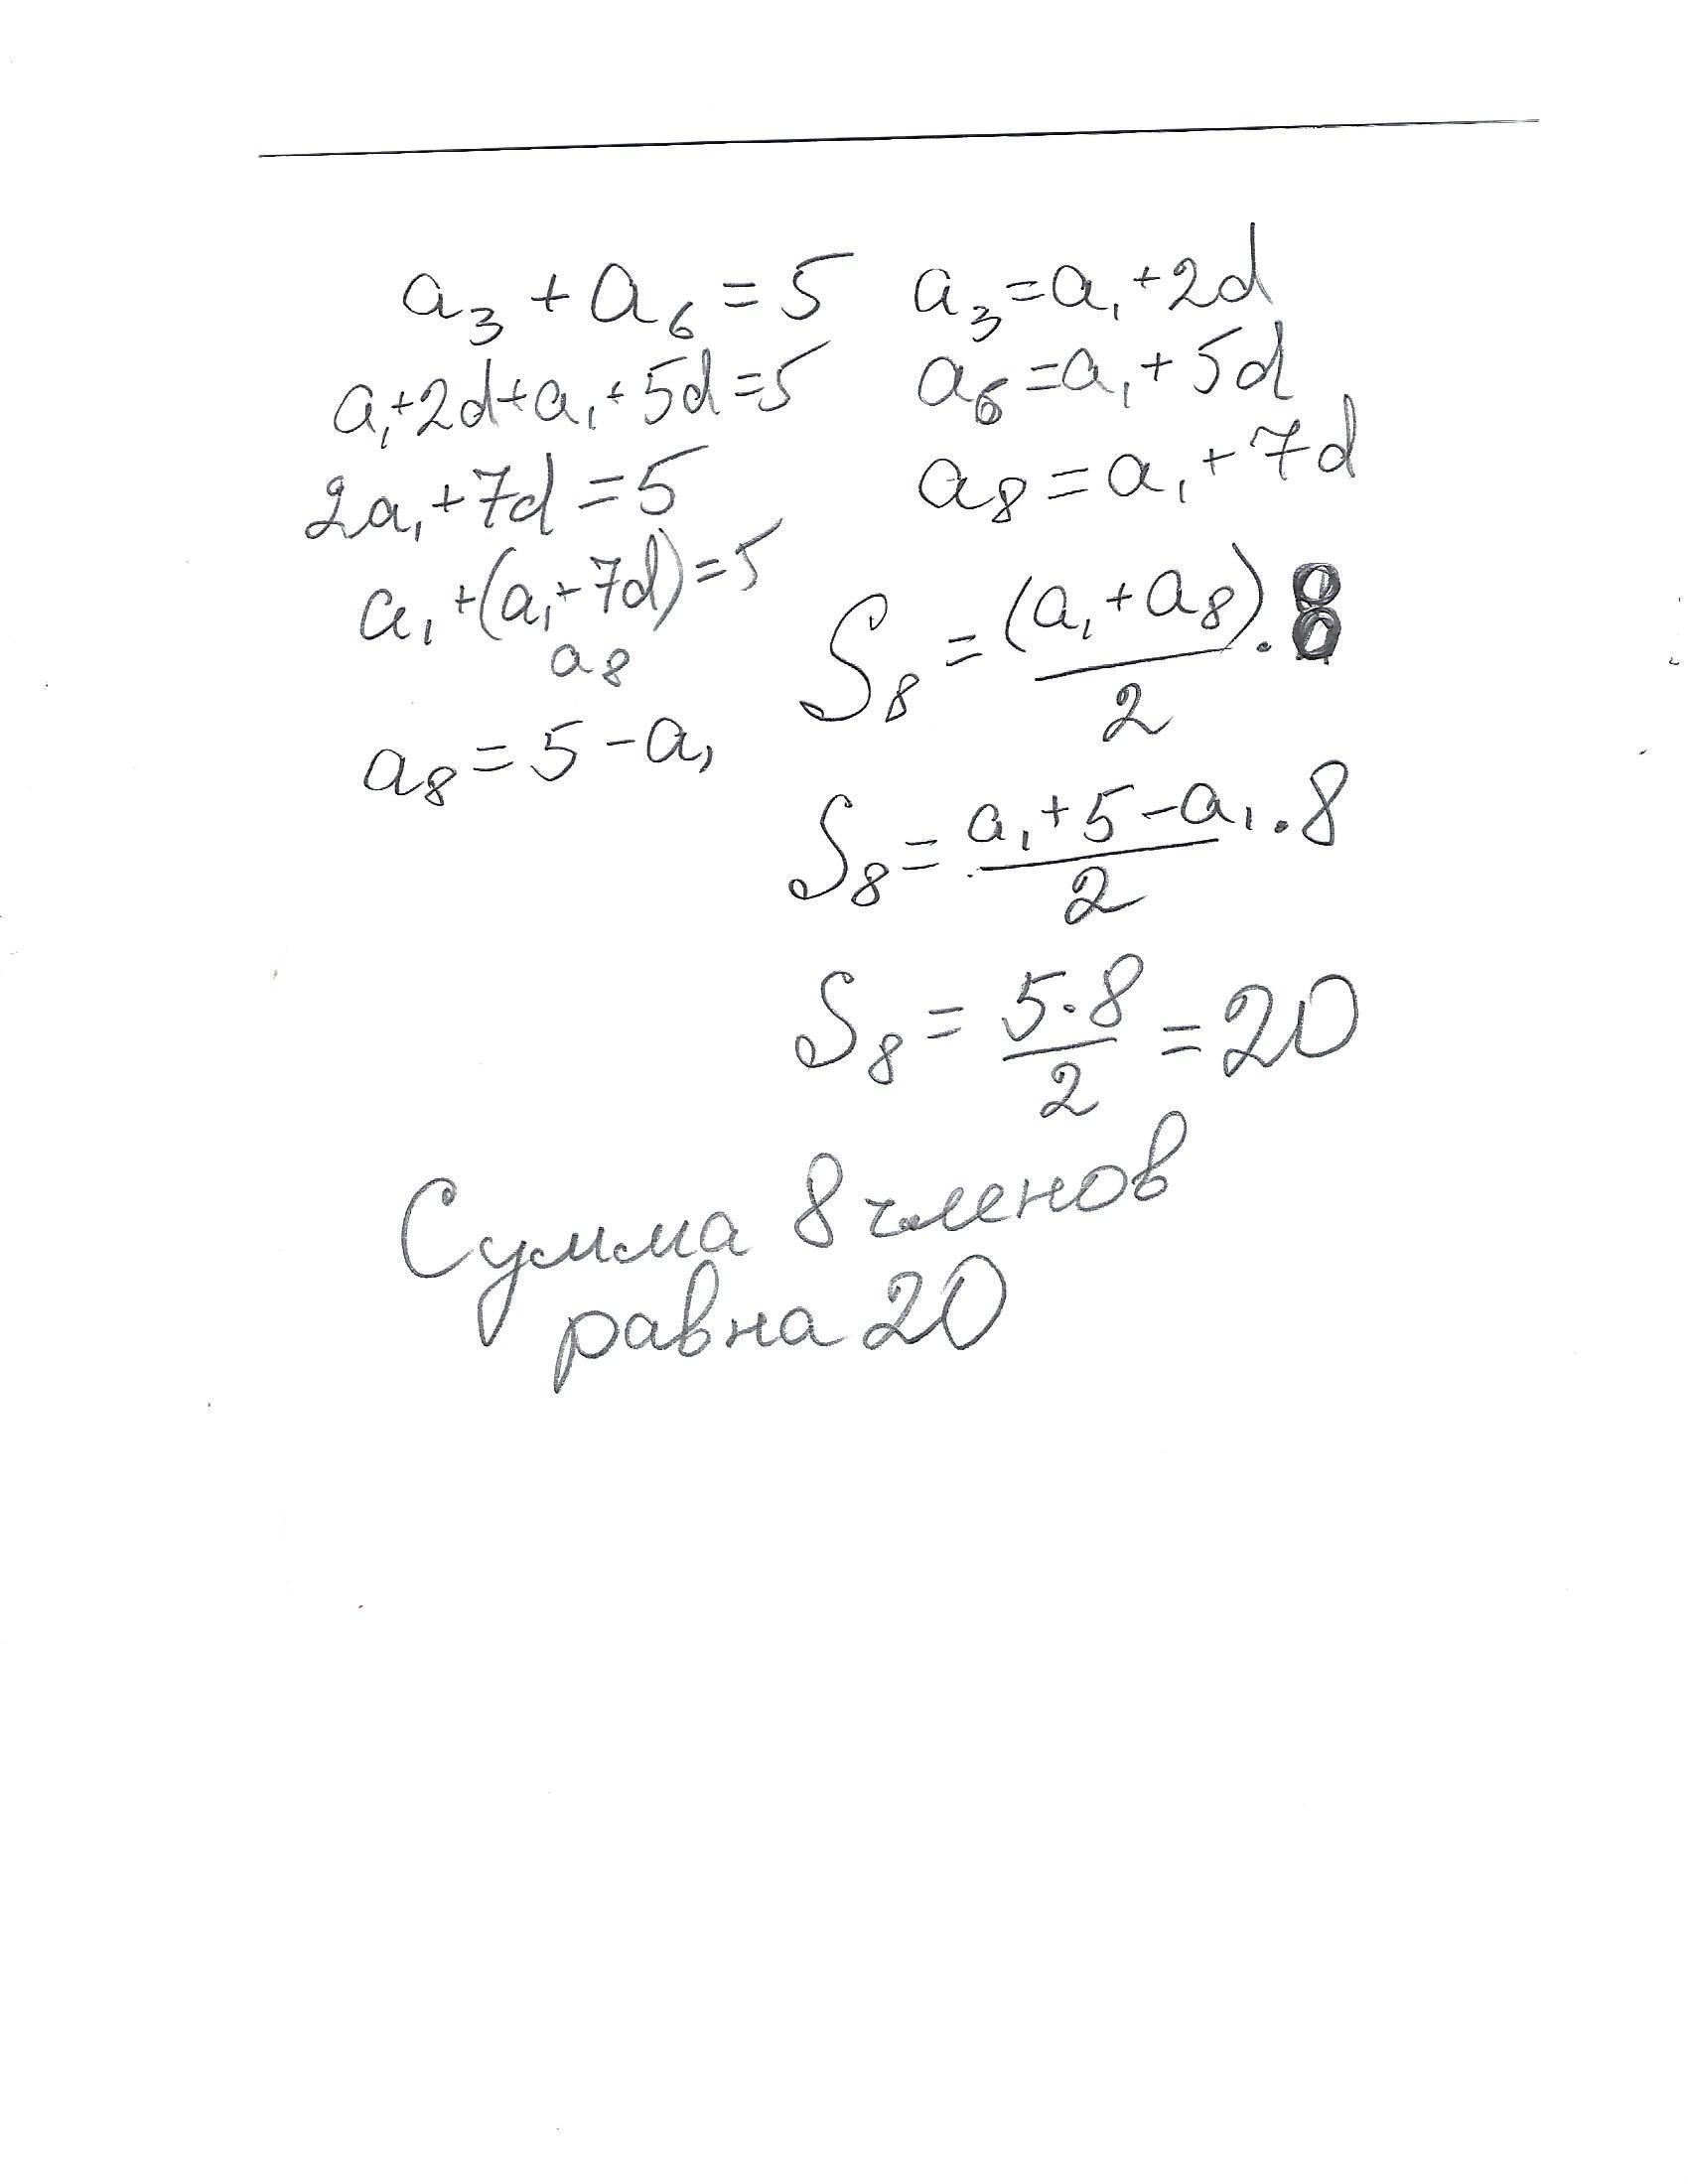 a₃ + a₆ = 5
a₁+2d+a₁+5d=5
2a₁+7d=5
a₁+(a₁+7d)=5
a₈
a₈=5-a₁
a₃=a₁+2d
a₆=a₁+5d
a₈=a₁+7d
S₈=(a₁+a₈)/2·8
S₈=a₁+5-a₁/2·8
S₈=5·8/2=20
Сумма 8 членов
равна 20